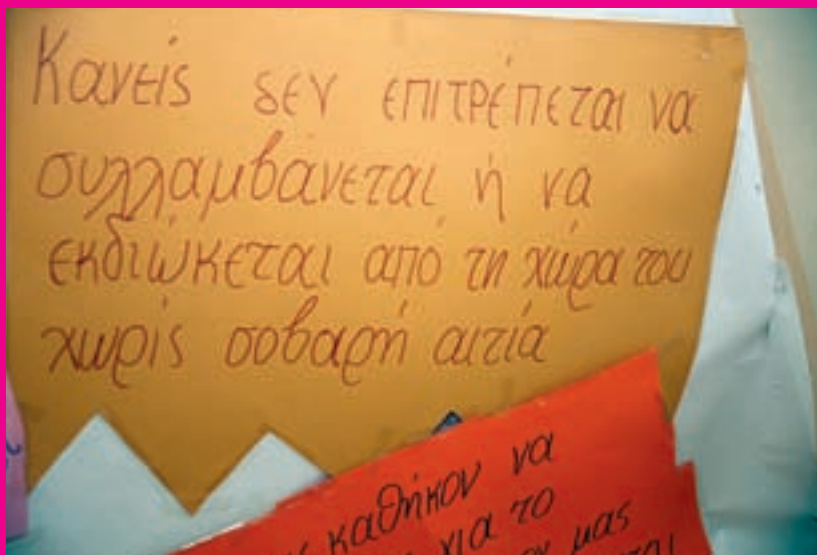 Κανείς δεν επιτρέπεται να
συλλαμβάνεται ή να
εκδιώκεται από τη χώρα του
χωρίς σοβαρή αιτία
καθήκον να
για το
μας